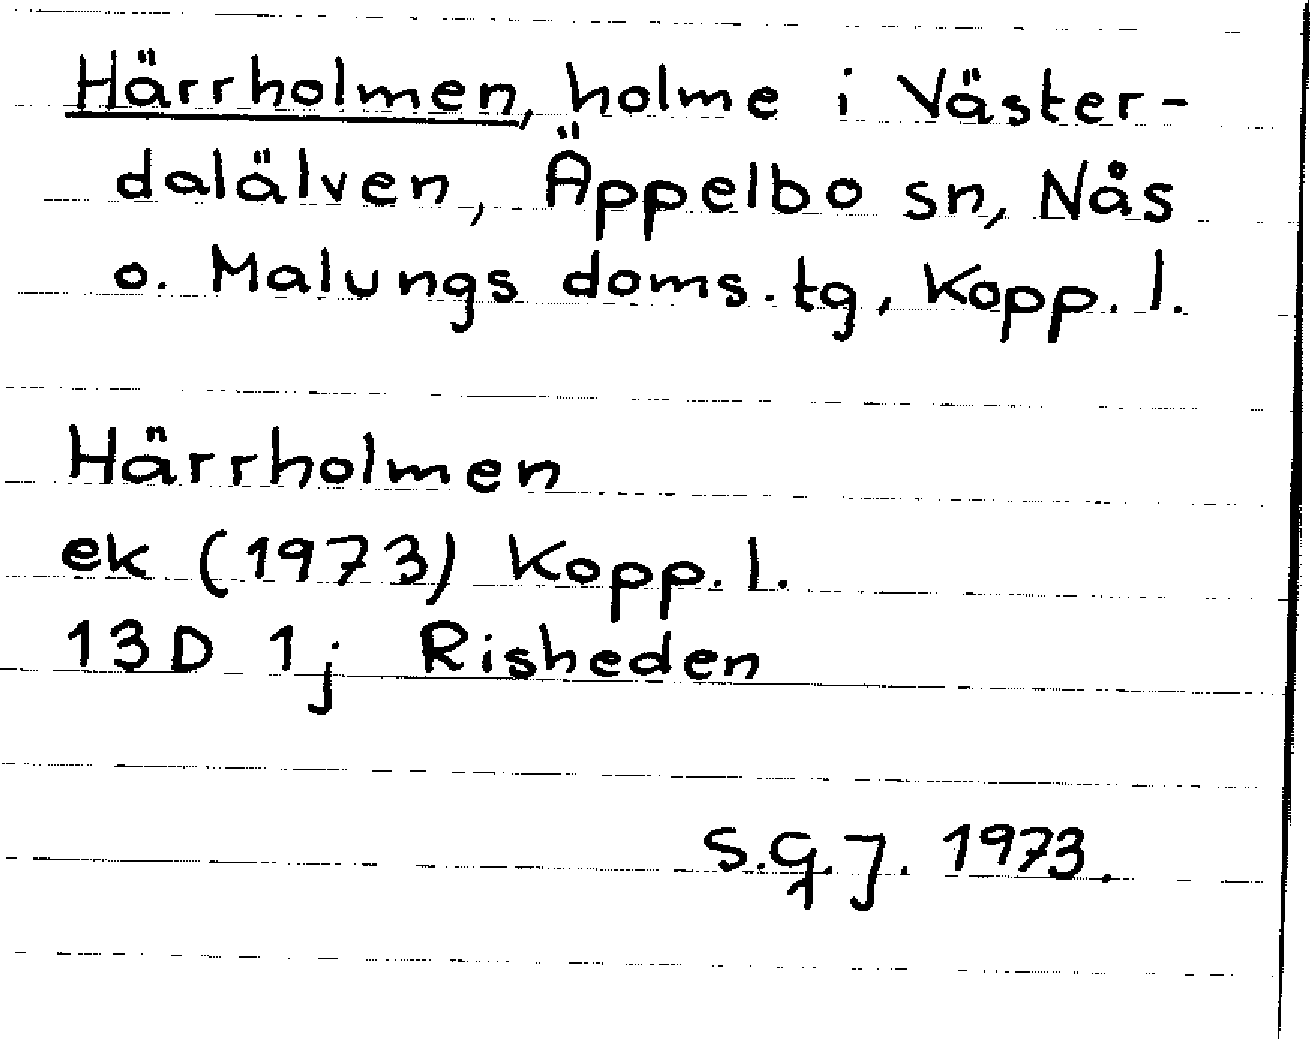 Härrholmen, holme i Väster-
dalälven, Äppelbo sn, Nås
o. Malungs doms. tg, Kopp. l.
Härrholmen
ek (1973) Kopp. l.
13D 1j Risheden
S.G.J. 1973.